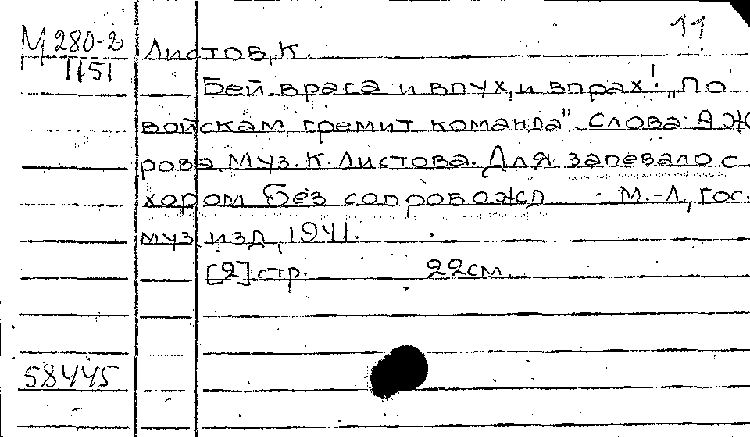 11
М 280-2 Листов, К.
1151
Бей врага и впух, и впрах! „По
войскам гремит команда" Слова А Ж
рова Муз. К. Листова. Для запевало с
хором без сопровожд М.-Л, Гос.
муз. изд, 1941.
[2] стр. 22см.
58445